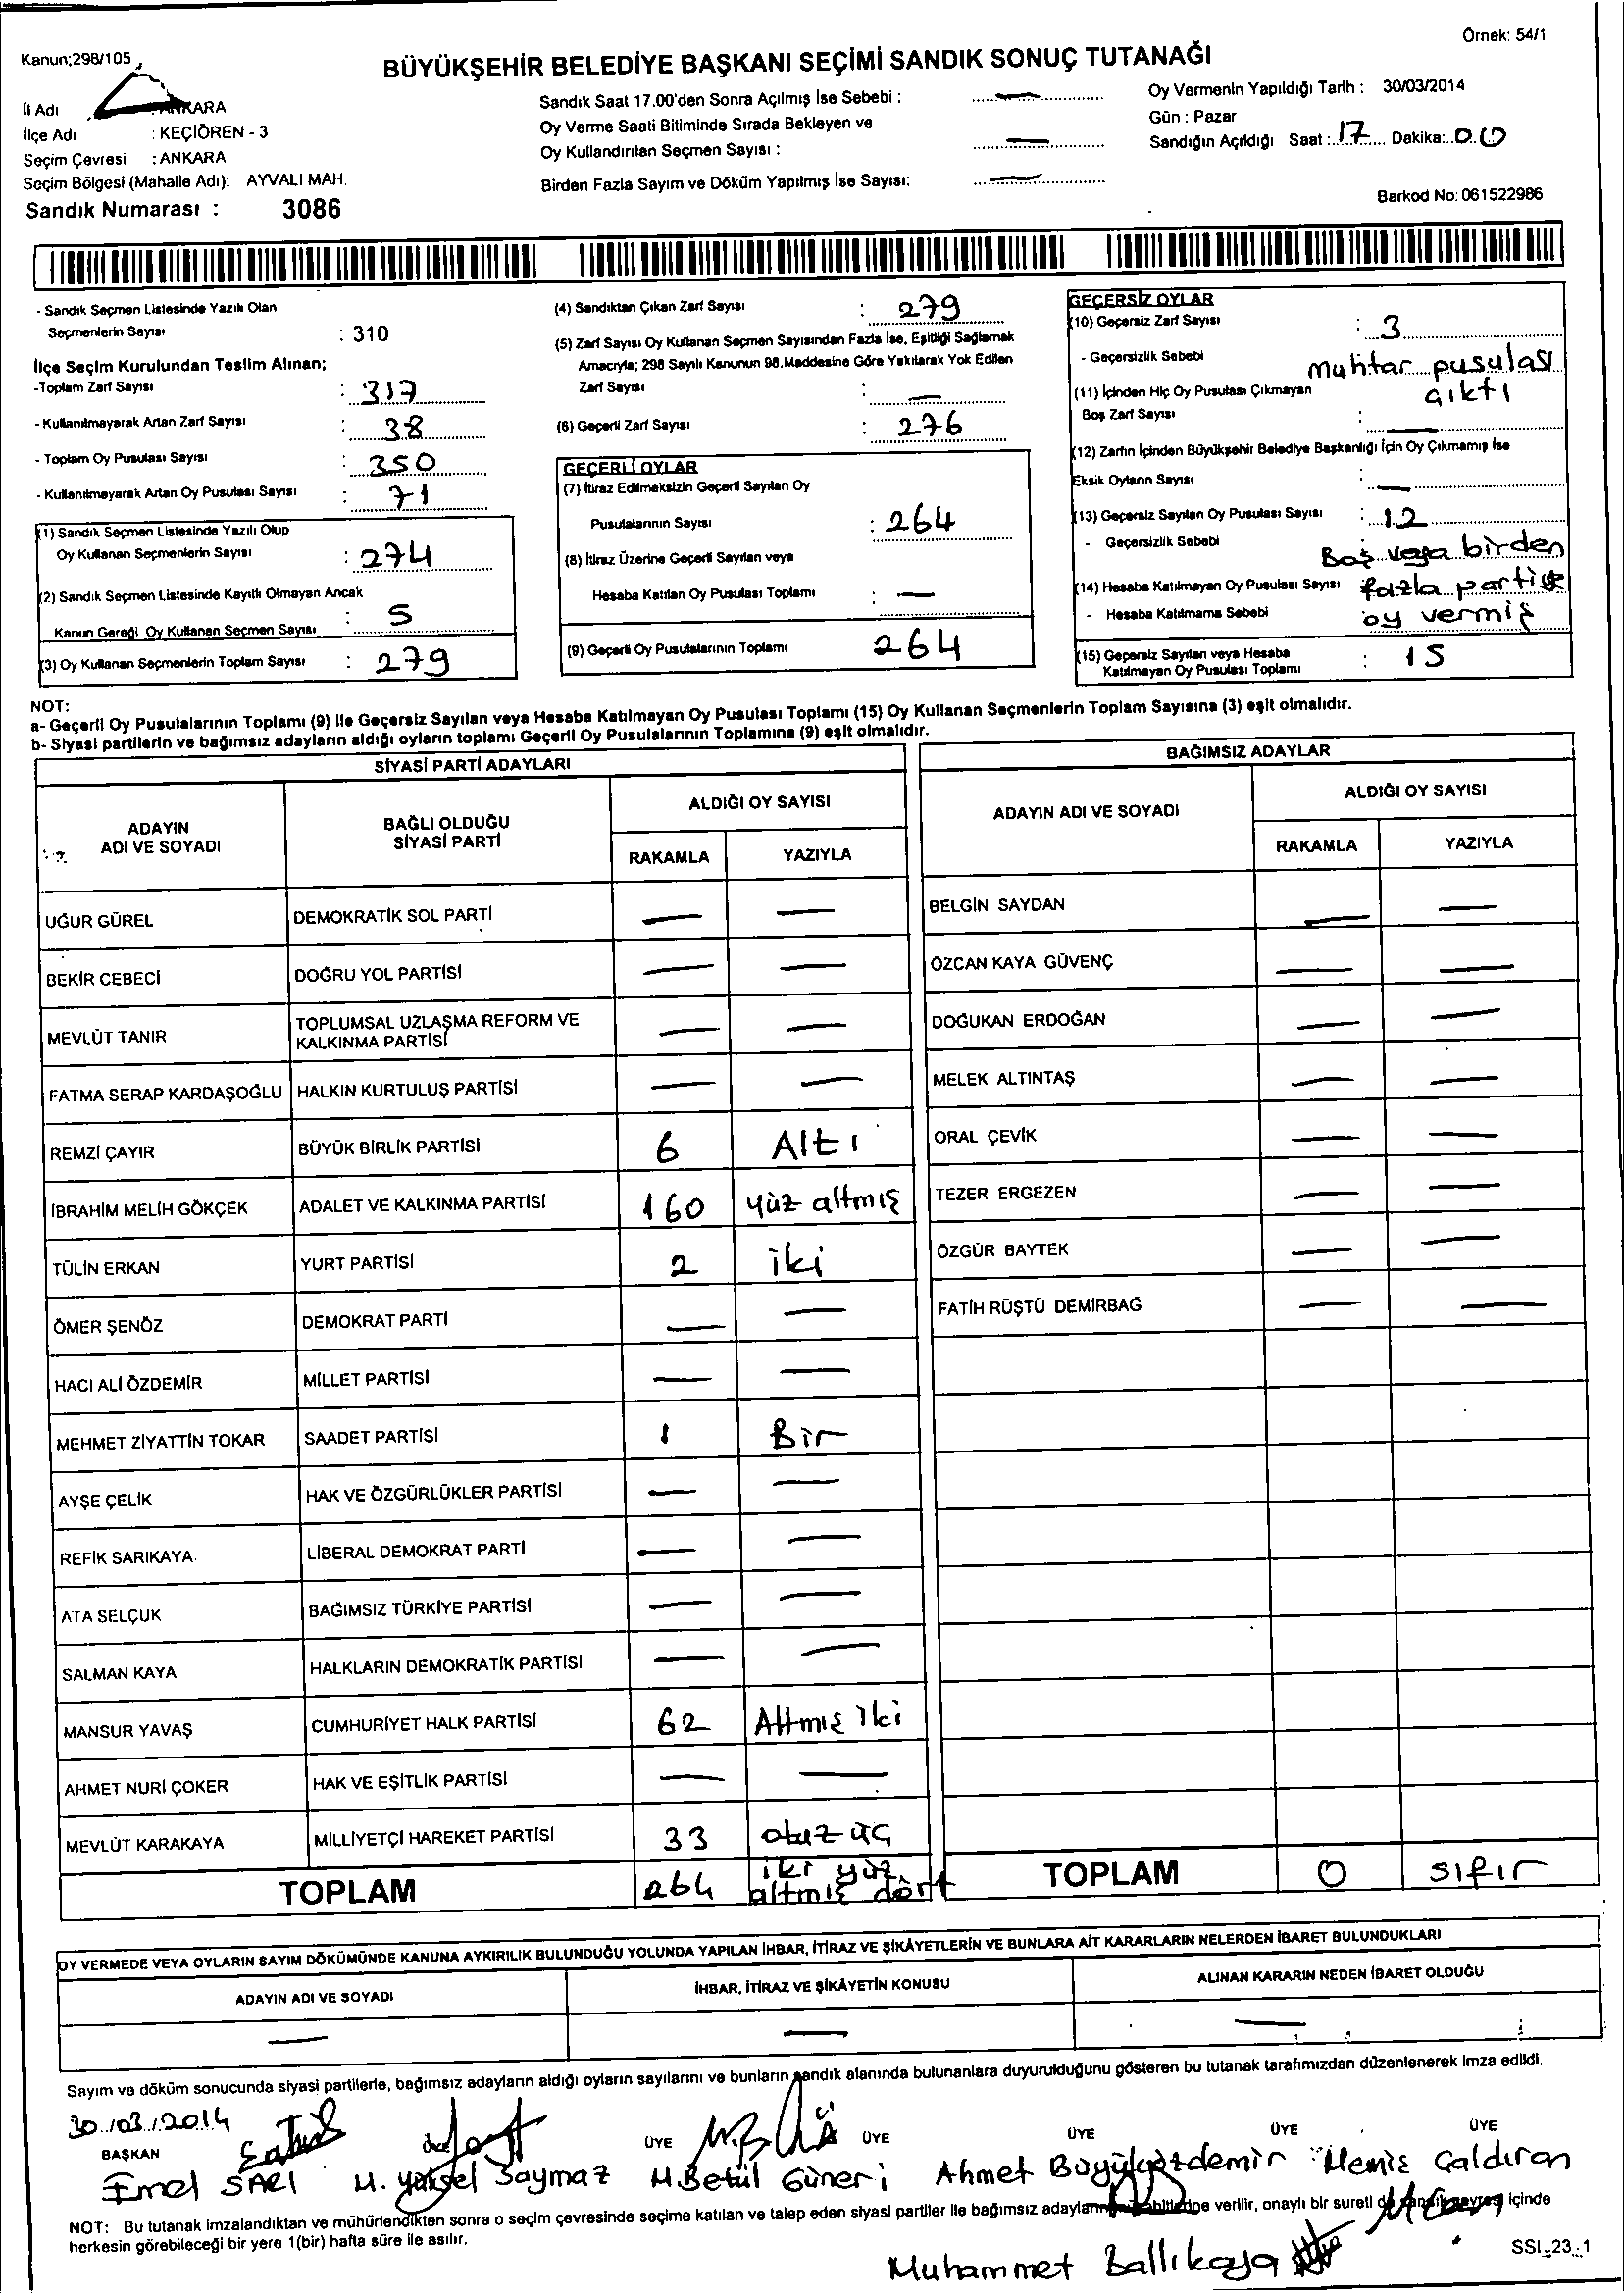 Örnek: 54/1
Kanun;298/105
BÜYÜKŞEHİR BELEDİYE BAŞKANI SEÇİMİ SANDIK SONUÇ TUTANAĞI
İl Adı : ANKARA
İlçe Adı : KEÇİÖREN - 3
Seçim Çevresi : ANKARA
Seçim Bölgesi (Mahalle Adı): AYVALI MAH.
Sandık Numarası : 3086
Sandık Saat 17.00'den Sonra Açılmış İse Sebebi : —
Oy Verme Saati Bitiminde Sırada Bekleyen ve
Oy Kullandırılan Seçmen Sayısı : —
Birden Fazla Sayım ve Döküm Yapılmış İse Sayısı: —
Oy Vermenin Yapıldığı Tarih : 30/03/2014
Gün : Pazar
Sandığın Açıldığı Saat : 17 Dakika: 00
Barkod No: 061522986
- Sandık Seçmen Listesinde Yazılı Olan
Seçmenlerin Sayısı : 310
İlçe Seçim Kurulundan Teslim Alınan;
-Toplam Zarf Sayısı : 317
- Kullanılmayarak Artan Zarf Sayısı : 38
- Toplam Oy Pusulası Sayısı : 350
- Kullanılmayarak Artan Oy Pusulası Sayısı : 71
(1) Sandık Seçmen Listesinde Yazılı Olup
Oy Kullanan Seçmenlerin Sayısı : 274
(2) Sandık Seçmen Listesinde Kayıtlı Olmayan Ancak
Kanun Gereği Oy Kullanan Seçmen Sayısı : 5
(3) Oy Kullanan Seçmenlerin Toplam Sayısı : 279
(4) Sandıktan Çıkan Zarf Sayısı : 279
(5) Zarf Sayısı Oy Kullanan Seçmen Sayısından Fazla İse, Eşitliği Sağlamak
Amacıyla; 298 Sayılı Kanunun 98.Maddesine Göre Yakılarak Yok Edilen
Zarf Sayısı : —
(6) Geçerli Zarf Sayısı : 276
GEÇERLİ OYLAR
(7) İtiraz Edilmeksizin Geçerli Sayılan Oy
Pusulalarının Sayısı : 264
(8) İtiraz Üzerine Geçerli Sayılan veya
Hesaba Katılan Oy Pusulası Toplamı : —
(9) Geçerli Oy Pusulalarının Toplamı 264
GEÇERSİZ OYLAR
(10) Geçersiz Zarf Sayısı : 3
- Geçersizlik Sebebi Muhtar pusulası
çıktı
(11) İçinden Hiç Oy Pusulası Çıkmayan
Boş Zarf Sayısı : —
(12) Zarfın İçinden Büyükşehir Belediye Başkanlığı İçin Oy Çıkmamış İse
Eksik Oyların Sayısı : —
(13) Geçersiz Sayılan Oy Pusulası Sayısı : 12
- Geçersizlik Sebebi Boş veya birden
(14) Hesaba Katılmayan Oy Pusulası Sayısı fazla partiye
- Hesaba Katılmama Sebebi oy vermiş
(15) Geçersiz Sayılan veya Hesaba
Katılmayan Oy Pusulası Toplamı : 15
NOT:
a- Geçerli Oy Pusulalarının Toplamı (9) ile Geçersiz Sayılan veya Hesaba Katılmayan Oy Pusulası Toplamı (15) Oy Kullanan Seçmenlerin Toplam Sayısına (3) eşit olmalıdır.
b- Siyasi partilerin ve bağımsız adayların aldığı oyların toplamı Geçerli Oy Pusulalarının Toplamına (9) eşit olmalıdır.
SİYASİ PARTİ ADAYLARI
ADAYIN
ADI VE SOYADI
BAĞLI OLDUĞU
SİYASİ PARTİ
ALDIĞI OY SAYISI
RAKAMLA YAZIYLA
UĞUR GÜREL DEMOKRATİK SOL PARTİ — —
BEKİR CEBECİ DOĞRU YOL PARTİSİ — —
MEVLÜT TANIR TOPLUMSAL UZLAŞMA REFORM VE
KALKINMA PARTİSİ — —
FATMA SERAP KARDAŞOĞLU HALKIN KURTULUŞ PARTİSİ — —
REMZİ ÇAYIR BÜYÜK BİRLİK PARTİSİ 6 Altı
İBRAHİM MELİH GÖKÇEK ADALET VE KALKINMA PARTİSİ 160 yüz altmış
TÜLİN ERKAN YURT PARTİSİ 2 iki
ÖMER ŞENÖZ DEMOKRAT PARTİ — —
HACI ALİ ÖZDEMİR MİLLET PARTİSİ — —
MEHMET ZİYATTİN TOKAR SAADET PARTİSİ 1 Bir
AYŞE ÇELİK HAK VE ÖZGÜRLÜKLER PARTİSİ — —
REFİK SARIKAYA LİBERAL DEMOKRAT PARTİ — —
ATA SELÇUK BAĞIMSIZ TÜRKİYE PARTİSİ — —
SALMAN KAYA HALKLARIN DEMOKRATİK PARTİSİ — —
MANSUR YAVAŞ CUMHURİYET HALK PARTİSİ 62 Altmış iki
AHMET NURİ ÇOKER HAK VE EŞİTLİK PARTİSİ — —
MEVLÜT KARAKAYA MİLLİYETÇİ HAREKET PARTİSİ 33 otuz üç
TOPLAM 264 iki yüz
altmış dört
BAĞIMSIZ ADAYLAR
ADAYIN ADI VE SOYADI
ALDIĞI OY SAYISI
RAKAMLA YAZIYLA
BELGİN SAYDAN — —
ÖZCAN KAYA GÜVENÇ — —
DOĞUKAN ERDOĞAN — —
MELEK ALTINTAŞ — —
ORAL ÇEVİK — —
TEZER ERGEZEN — —
ÖZGÜR BAYTEK — —
FATİH RÜŞTÜ DEMİRBAĞ — —
TOPLAM 0 sıfır
OY VERMEDE VEYA OYLARIN SAYIM DÖKÜMÜNDE KANUNA AYKIRILIK BULUNDUĞU YOLUNDA YAPILAN İHBAR, İTİRAZ VE ŞİKÂYETLERİN VE BUNLARA AİT KARARLARIN NELERDEN İBARET BULUNDUKLARI
ADAYIN ADI VE SOYADI İHBAR, İTİRAZ VE ŞİKÂYETİN KONUSU ALINAN KARARIN NEDEN İBARET OLDUĞU
— — —
Sayım ve döküm sonucunda siyasi partilerle, bağımsız adayların aldığı oyların sayılarını ve bunların sandık alanında bulunanlara duyurulduğunu gösteren bu tutanak tarafımızdan düzenlenerek imza edildi.
30/03/2014
BAŞKAN ÜYE ÜYE ÜYE ÜYE ÜYE
Emel SARI M. Yüksel Saymaz M.Betül Güneri Ahmet Büyüközdemir Galdıran
NOT: Bu tutanak imzalandıktan ve mühürlendikten sonra o seçim çevresinde seçime katılan ve talep eden siyasi partiler ile bağımsız adayların verilir, onaylı bir sureti de sandık çevresi içinde
herkesin görebileceği bir yere 1(bir) hafta süre ile asılır.
Muhammet Ballıkaya
SSI_23_1